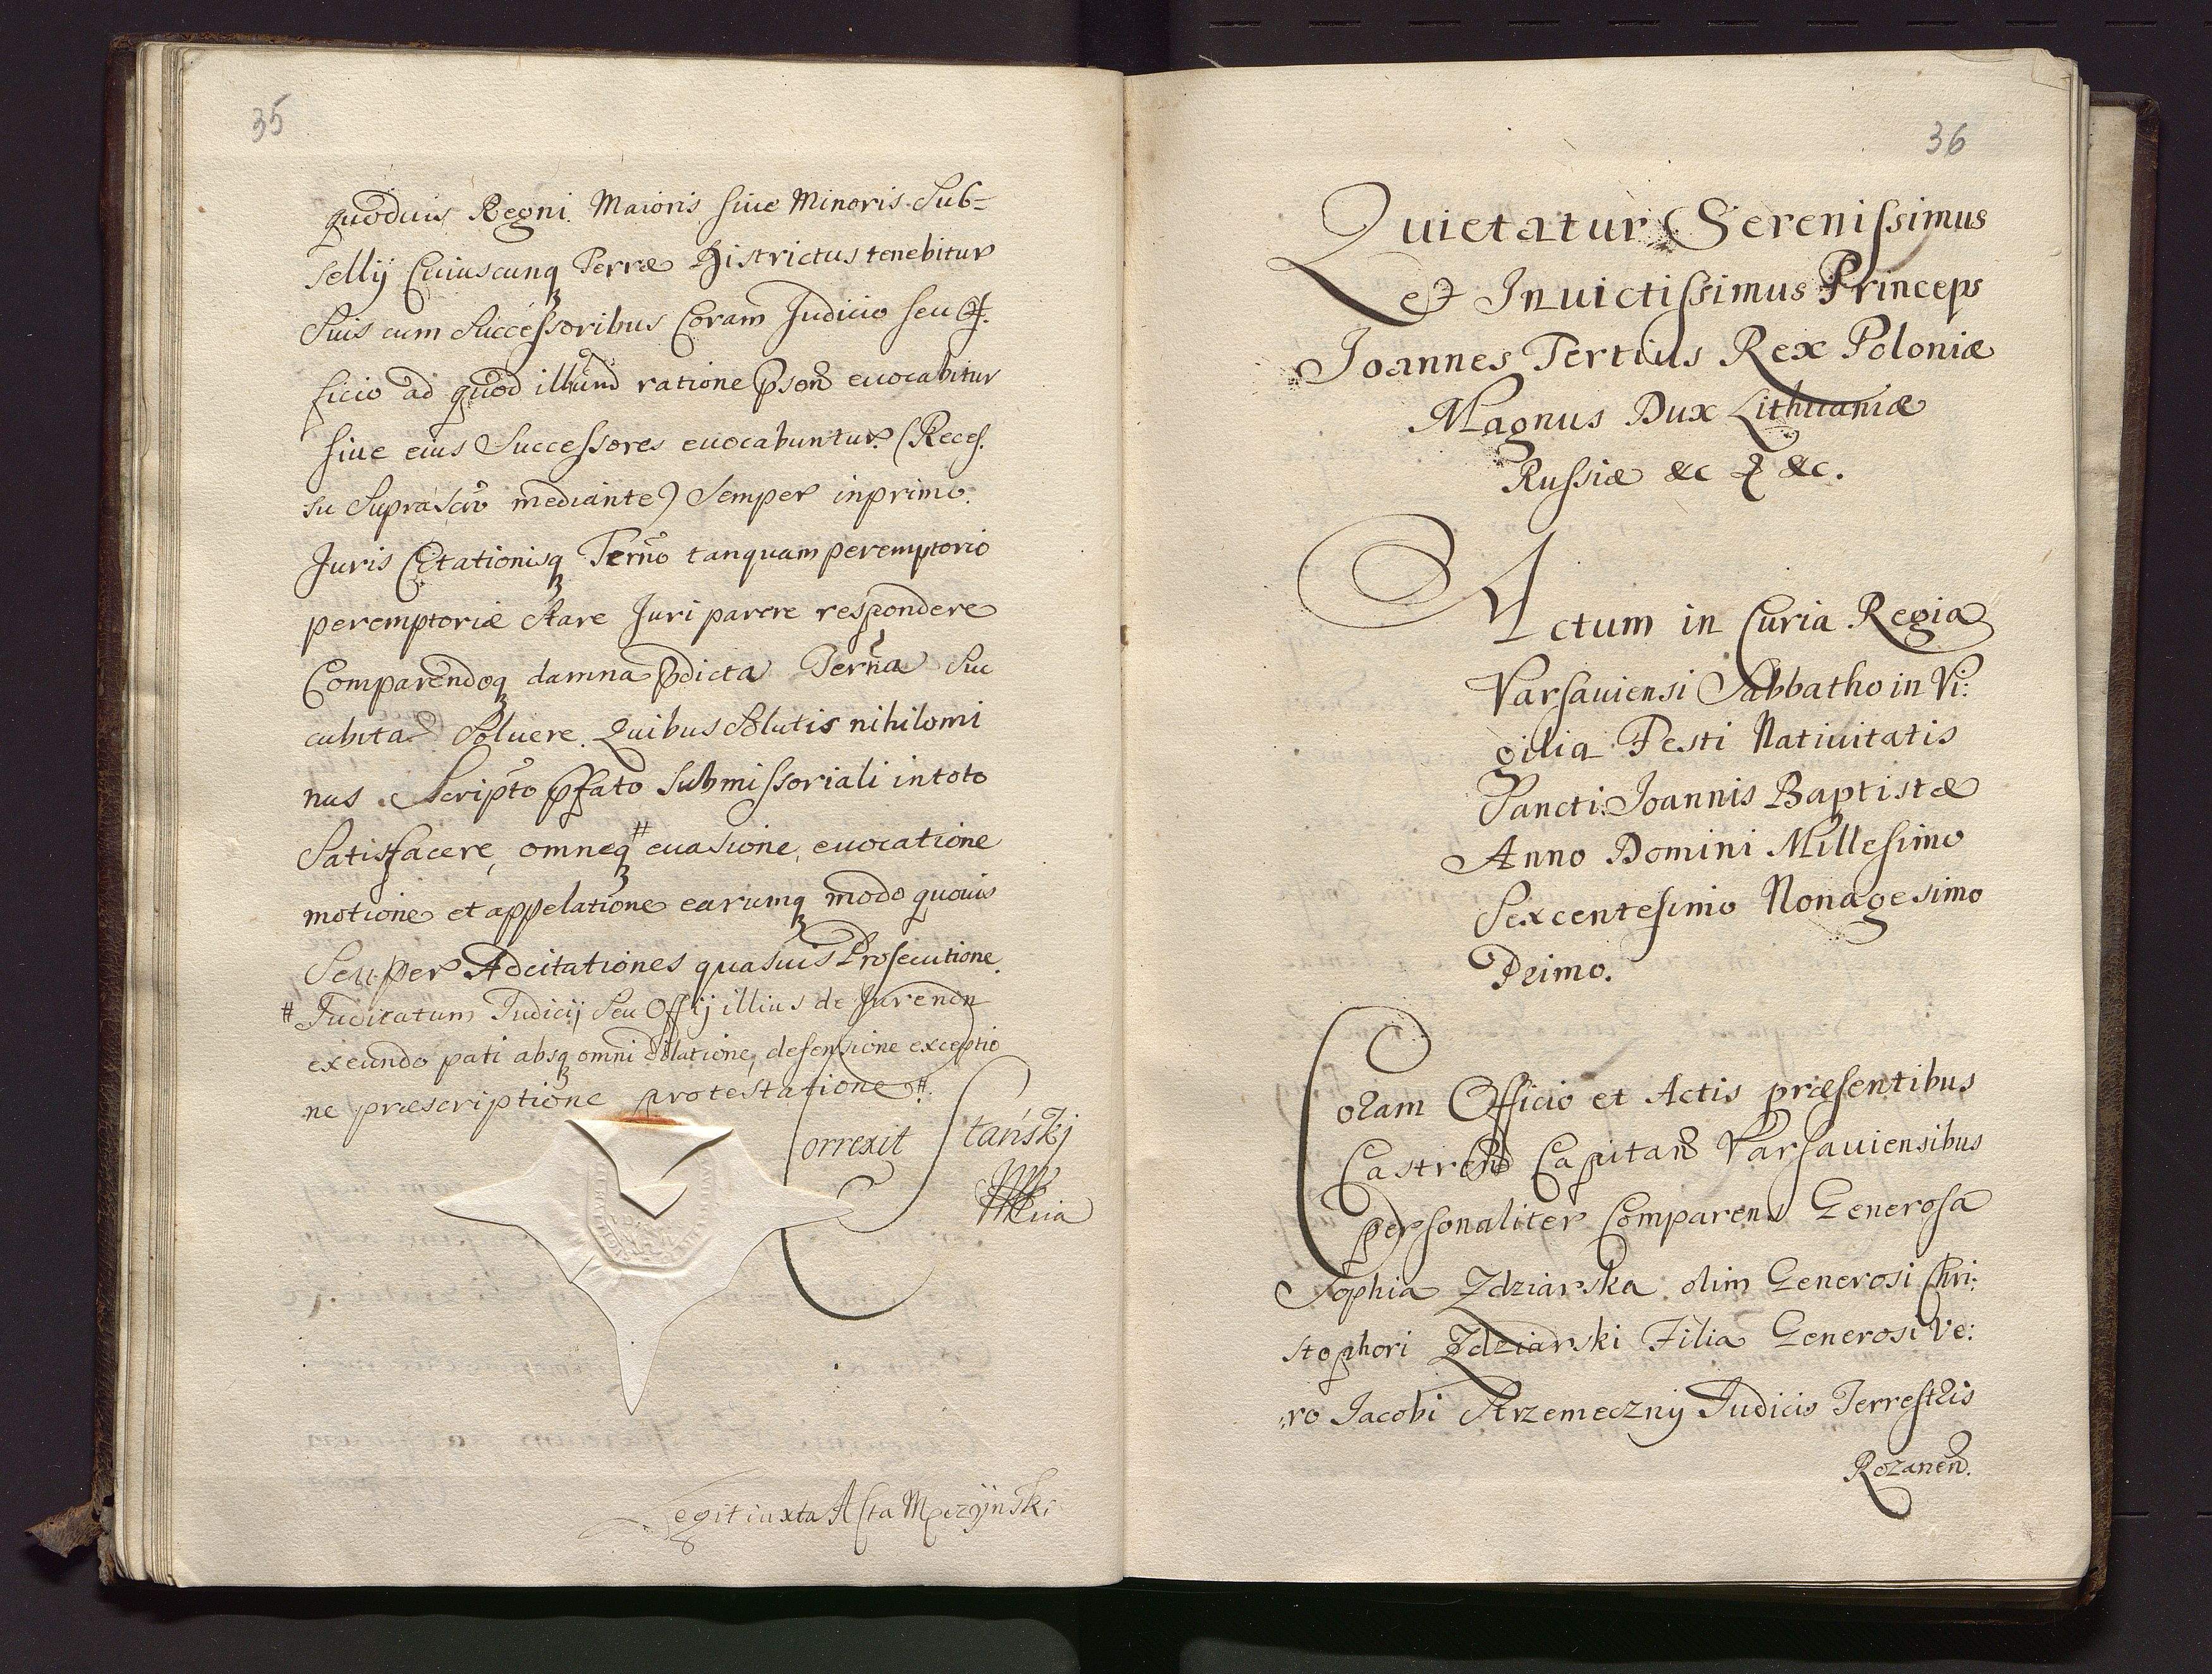 35
quoduis Regni Maioris siue Minoris Sub=
sellij Cuiuscunq3 Terræ Districtus tenebitur
Suis cum Successoribus Coram Judicio seu Of.
ficio ad quod illum ratione evocabitur
siue eius Successores euocabuntur (Reces.
su Suprascr̃o mediante) Semper inprimo
Juris Citationisq3 Terño tanquam peremptorio
peremptoriæ Stare Juri parere respondere
Comparendoq3 damna pdicta Terña Suc
cubita Soluere. Quibus Solutis nihilomi
nus Scripto pfato Submissoriali intoto
Satisfacere, omneq3 # euasione, euocatione
motione et appelatione earumq3 modo quouis
Seu per Adcitationes quasuis Prosecutione.
# Judicatum Judicij Seu Offij illius de Jure non
exeundo pati absq3 omni dilatione, defensione exceptio
ne præscriptione protestatione #.
Correxit Stański
Legit iuxta Acta Męczÿnski
36
Quietatur Serenissimus
et Inuictissimus Princeps
Joannes Tertius Rex Poloniæ
Magnus Dux Lithuaniæ
Russiæ &c & &c.
Actum in Curia Regia
Varsauiensi Sabbatho in Vi:
gilia Festi Natiuitatis
Sancti Joannis Baptistæ
Anno Domini Millesimo
Sexcentesimo Nonagesimo
Primo.
Coram Officio et Actis præsentibus
Castren Capitan Varsauiensibus
personaliter Comparens Generosa
Sophia Zdziarska olim Generosi Chri:
stophori Zdziarski Filia Generosi Ve:
ro Jacobi Strzemeczny Judicis Terrestris
Rozanen.